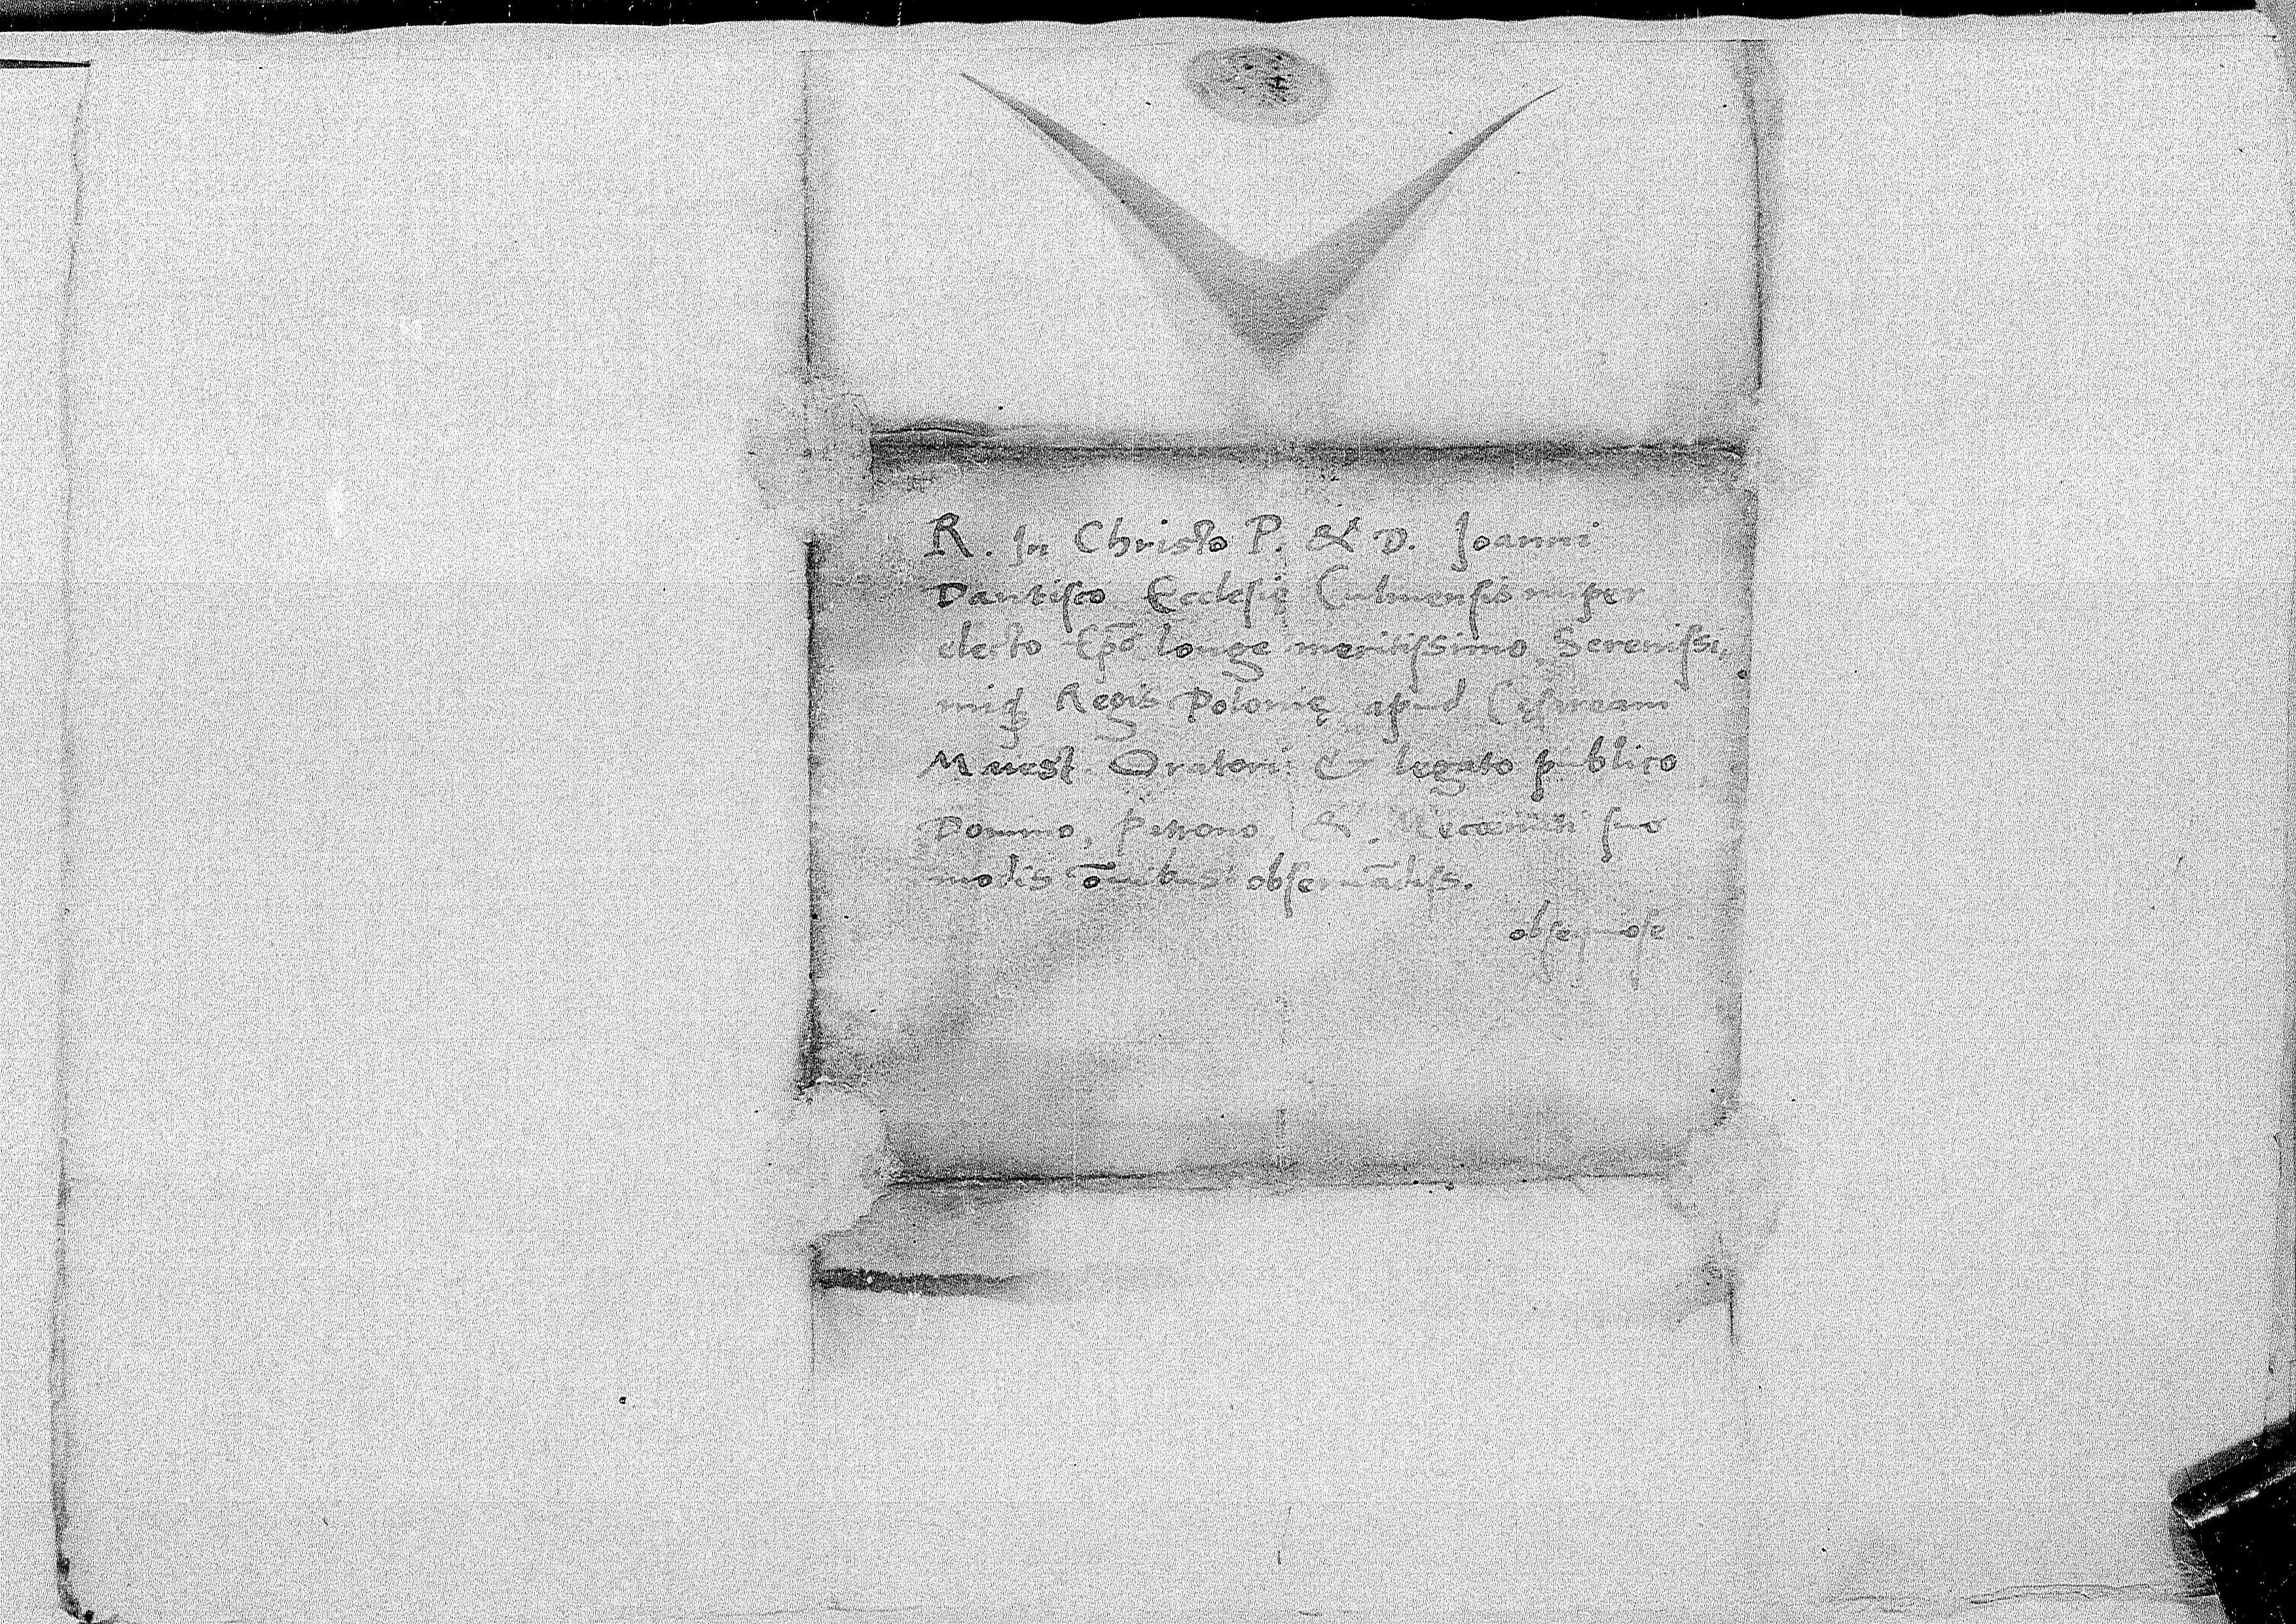 R. In Christo P. & D. Joanni
Dantisco Ecclesię Culmensis nuper
electo Ep̄o longe meritissimo, Serenissi,
miq̨ Regis Polonię apud Cęsaream
Maiest. Oratori & legato publico
Domino, Patrono & Mecœnati suo
modis ōnibus obseruādiss.
obsequiose